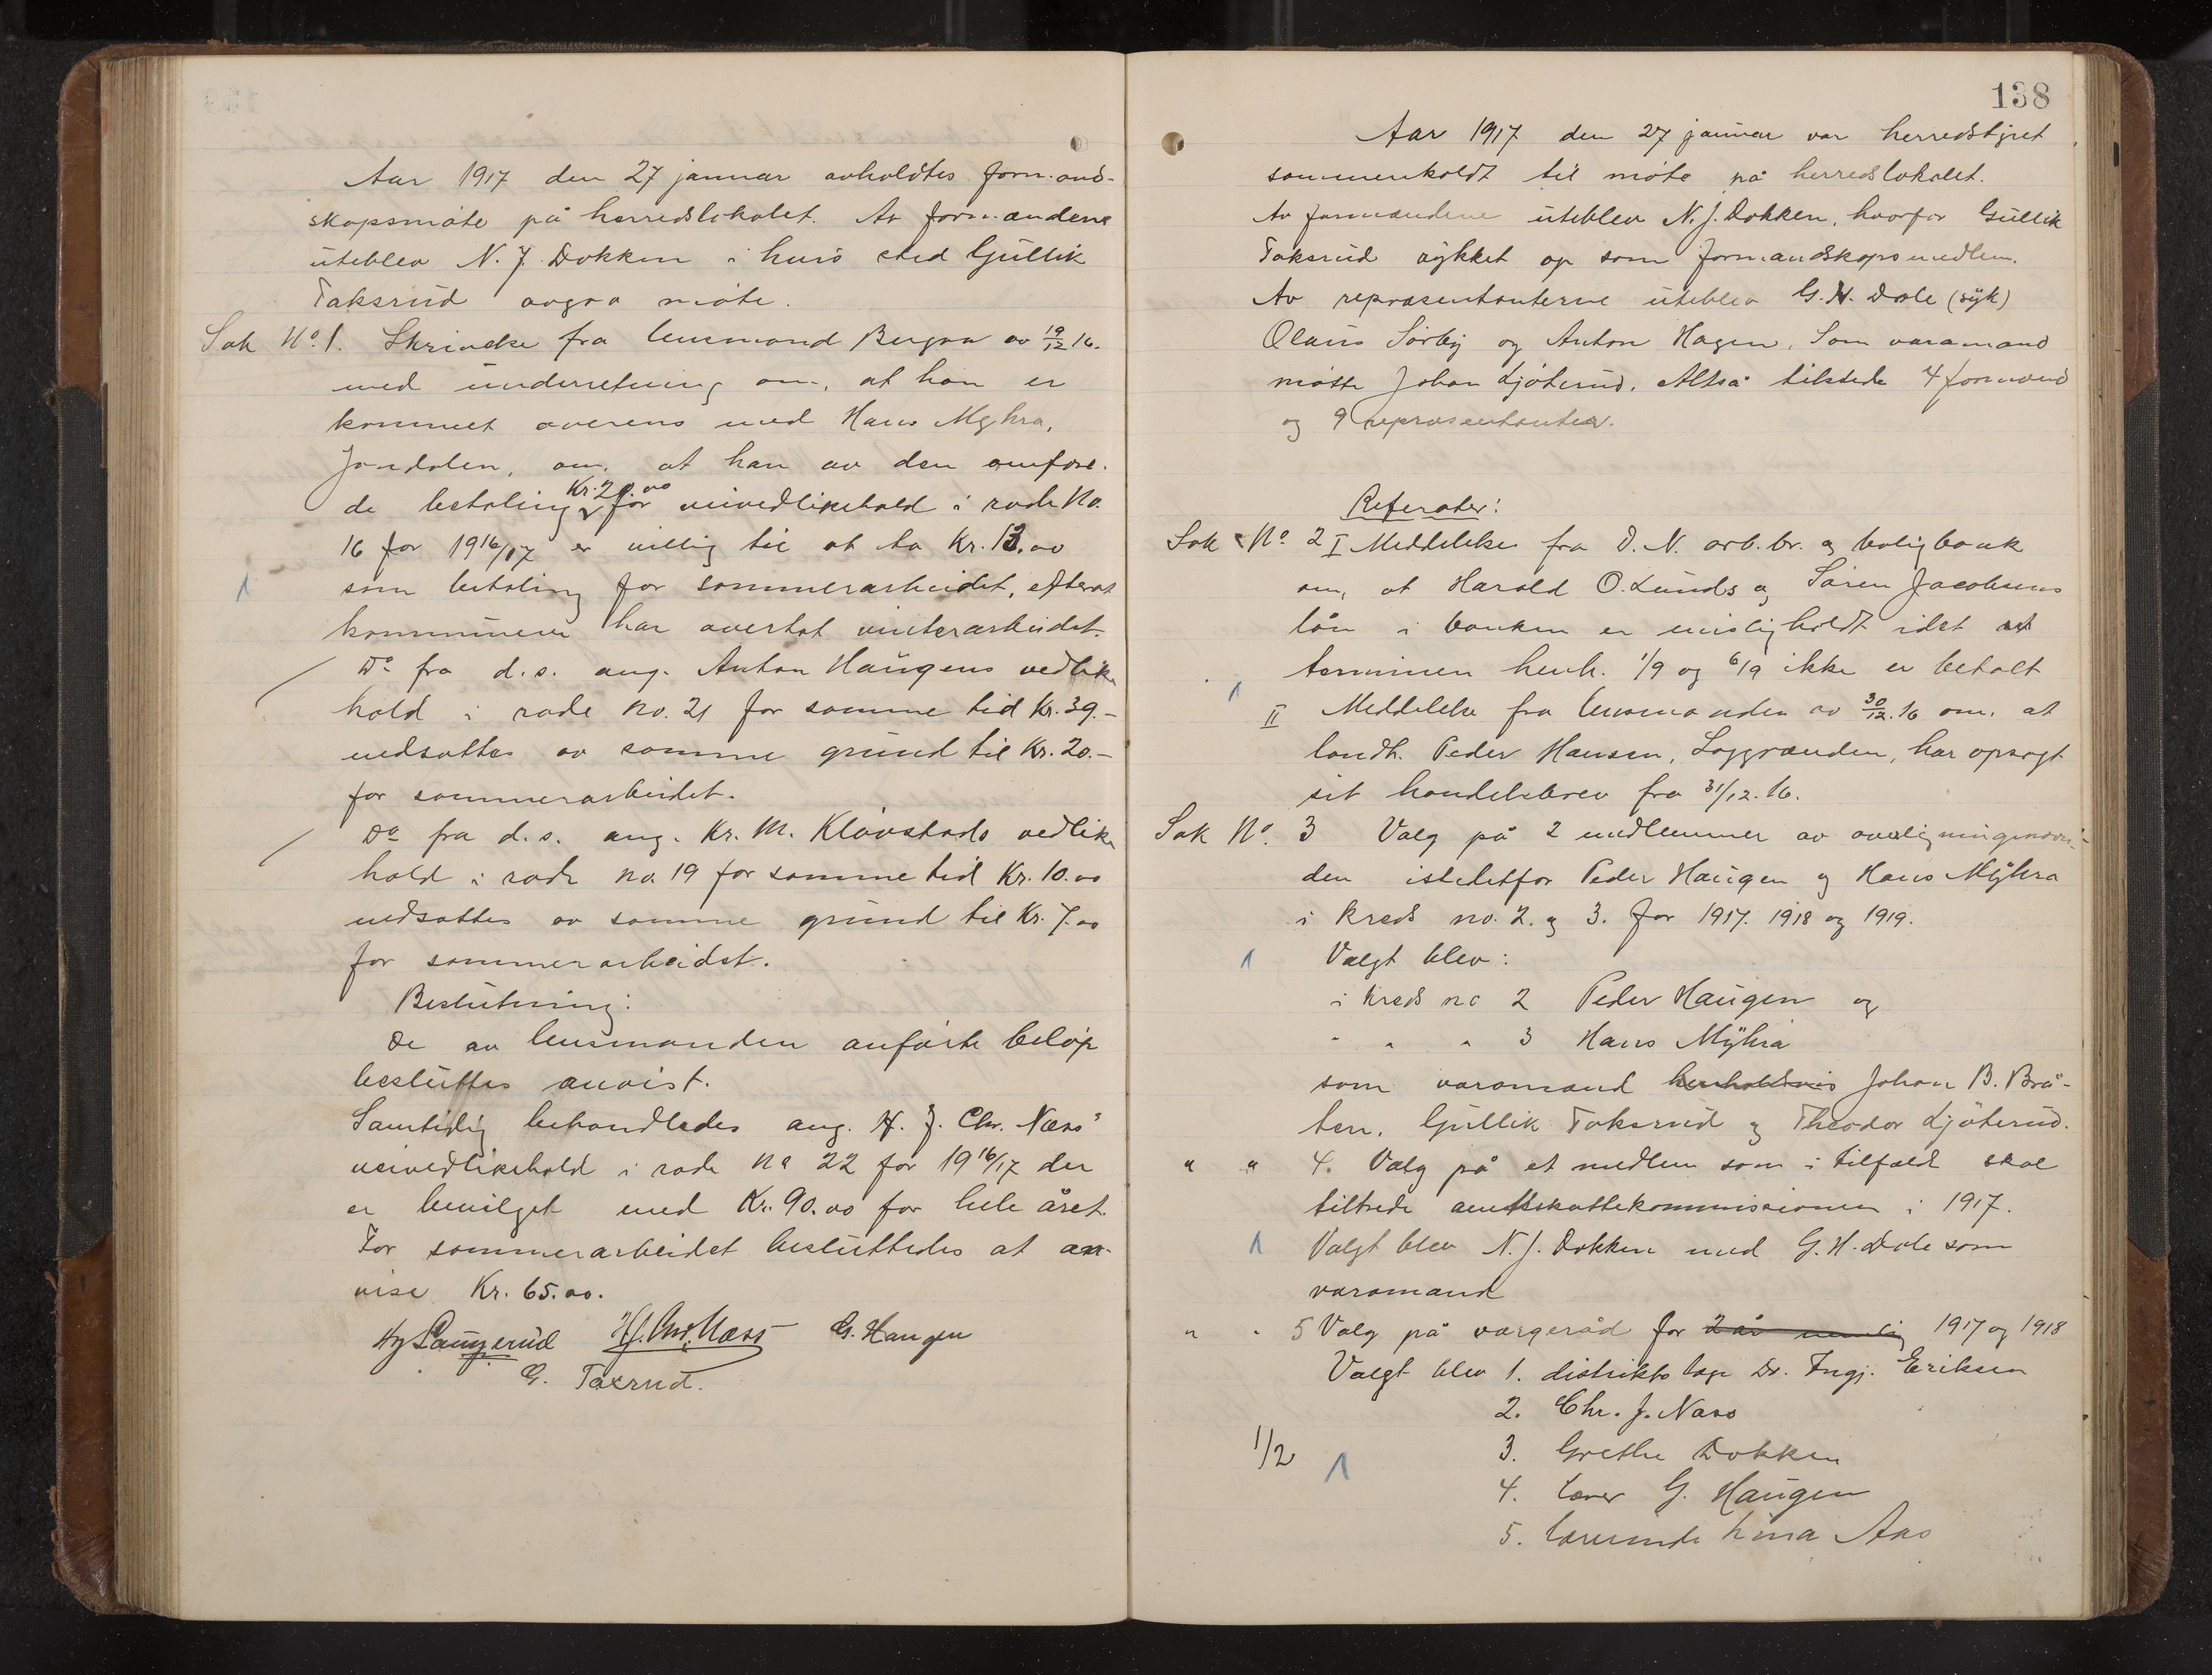 Aar 1917 den 27 januar avholdtes formand-
skapsmøte på herredslokalet. Av formændene
uteblev N. J. Dokken i hvis sted Gullik
Taksrud avgav møte.
Sak No. 1. Skrivelse fra lensmand Bergan av 19/12 16.
med underretning om, at han er
kommet overens med Hans Myhra,
Jondalen, om at han av den anføre-
de betaling Kr. 20.00 for veivedlikehold i rode No.
16 for 1916/17 er villig til at ta Kr. 13.00
som betaling for sommerarbeidet, efterat
kommunen har overtat vinterarbeidet.
Do fra d.s. ang. Anton Haugens vedlike
hold i rode no. 21 for samme tid Kr. 39.-
nedsattes av samme grund til Kr. 20.-
for sommerarbeidet.
Do fra d.s. ang. Kr. M. Kløvstads vedlike
hold i rode no. 19 for samme tid Kr. 10.00
nedsattes av samme grund til Kr. 7.00
for sommerarbeidet.
Beslutning:
De av lensmanden anførte beløp
besluttes anvist.
Samtidig behandledes ang. H. J. Chr. Næss'
veivedlikehold i rode no 22 for 1916/17 der
er bevilget med Kr. 90.00 for hele året.
For sommerarbeidet besluttedes at an-
vise Kr. 65.00.
H. J. Chr. Næss G. Haugen
G. Taxrud.
138
Aar 1917 den 27 januar var herredstyret
sammenkaldt til møte på herredslokalet.
Av formændene uteblev N. J. Dokken, hvorfor Gullik
Taksrud rykket op som formandskapsmedlem.
Av repræsentanterne uteblev G. H. Dale (syk)
Olaus Sørby og Anton Hagen. Som varamand
møtte Johan Ljøterud. Altså tilstede 4 formænd
og 9 repræsentanter.
Referater:
Sak No 2 I Meddelelse fra D. N. arb. br. og boligbank
om, at Harald O. Lunds og Søren Jacobsens
lån i banken er misligholdt idet
terminen henh. 1/9 og 6/9 ikke er betalt
II Meddelelse fra lensmanden av 30/12.16 om, at
landh. Peder Hansen, Loggrænden, har opsagt
sit handelsbrev fra 31/12.16.
Sak No. 3 Valg på 2 medlemmer av overligningsnævn-
den istedetfor Peder Haugen og Hans Myhra
i kreds no. 2. og 3. for 1917. 1918 og 1919.
Valgt blev:
i kreds no 2 Peder Haugen og
" " " 3 Hans Myhra
som varamand henholdsvis Johan B. Brå-
ten, Gullik Taksrud og Theodor Ljøterud.
" " 4. Valg på et medlem som i tilfælde skal
tiltræde amtsskattekommissionen i 1917.
Valgt blev N. J. Dokken med G. H. Dale som
varamand
" " 5 Valg på vergeråd for 2 år nemlig 1917 og 1918
Valgt blev 1. distriktslæge Dr. Ingj. Eriksen
2. Chr. J. Næss
1/2 3. Grethe Dokken
4. Lærer G. Haugen
5. Lærerinde Aas